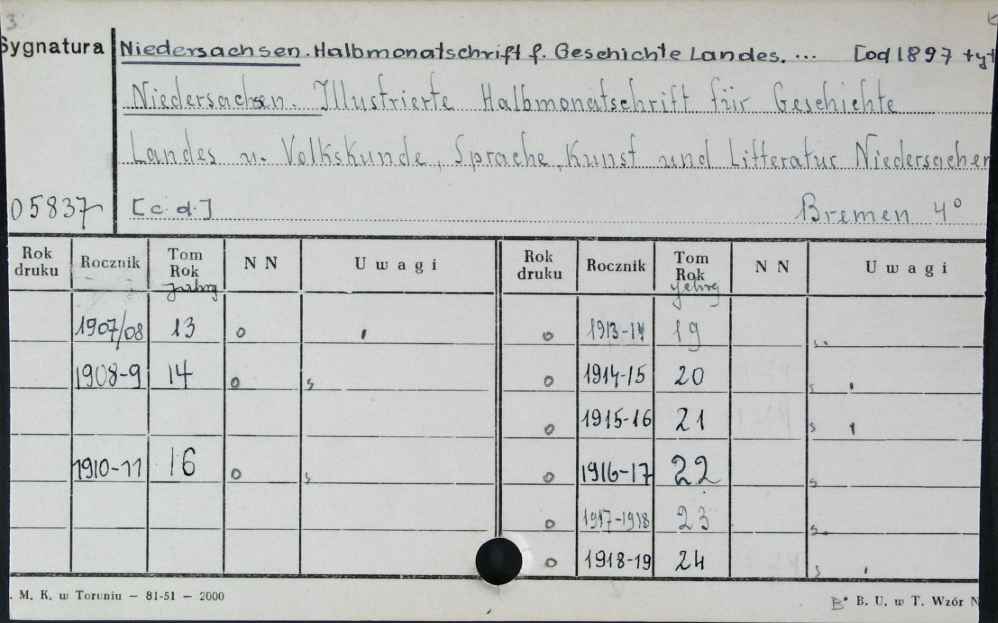 3.
Sygnatura Niedersachsen. Halbmonatschrift f. Geschichte Landes. ... [od 1897 tyt
Niedersachsen. Illustrierte Halbmonatschrift für Geschichte
Landes u. Volkskunde, Sprache, Kunst und Litteratur Niedersachen
05837 [c. d.] Bremen 4°
Rok druku Rocznik Tom Rok Jahrg N N Uwagi Rok druku Rocznik Tom Rok Jahrg N N Uwagi
1907/08 13 1913-14 19
1908-9 14 1914-15 20
1915-16 21
1910-11 16 1916-17 22
1917-1918 23
1918-19 24
. M. K. w Toruniu – 81-51 – 2000 B. U. w T. Wzór N